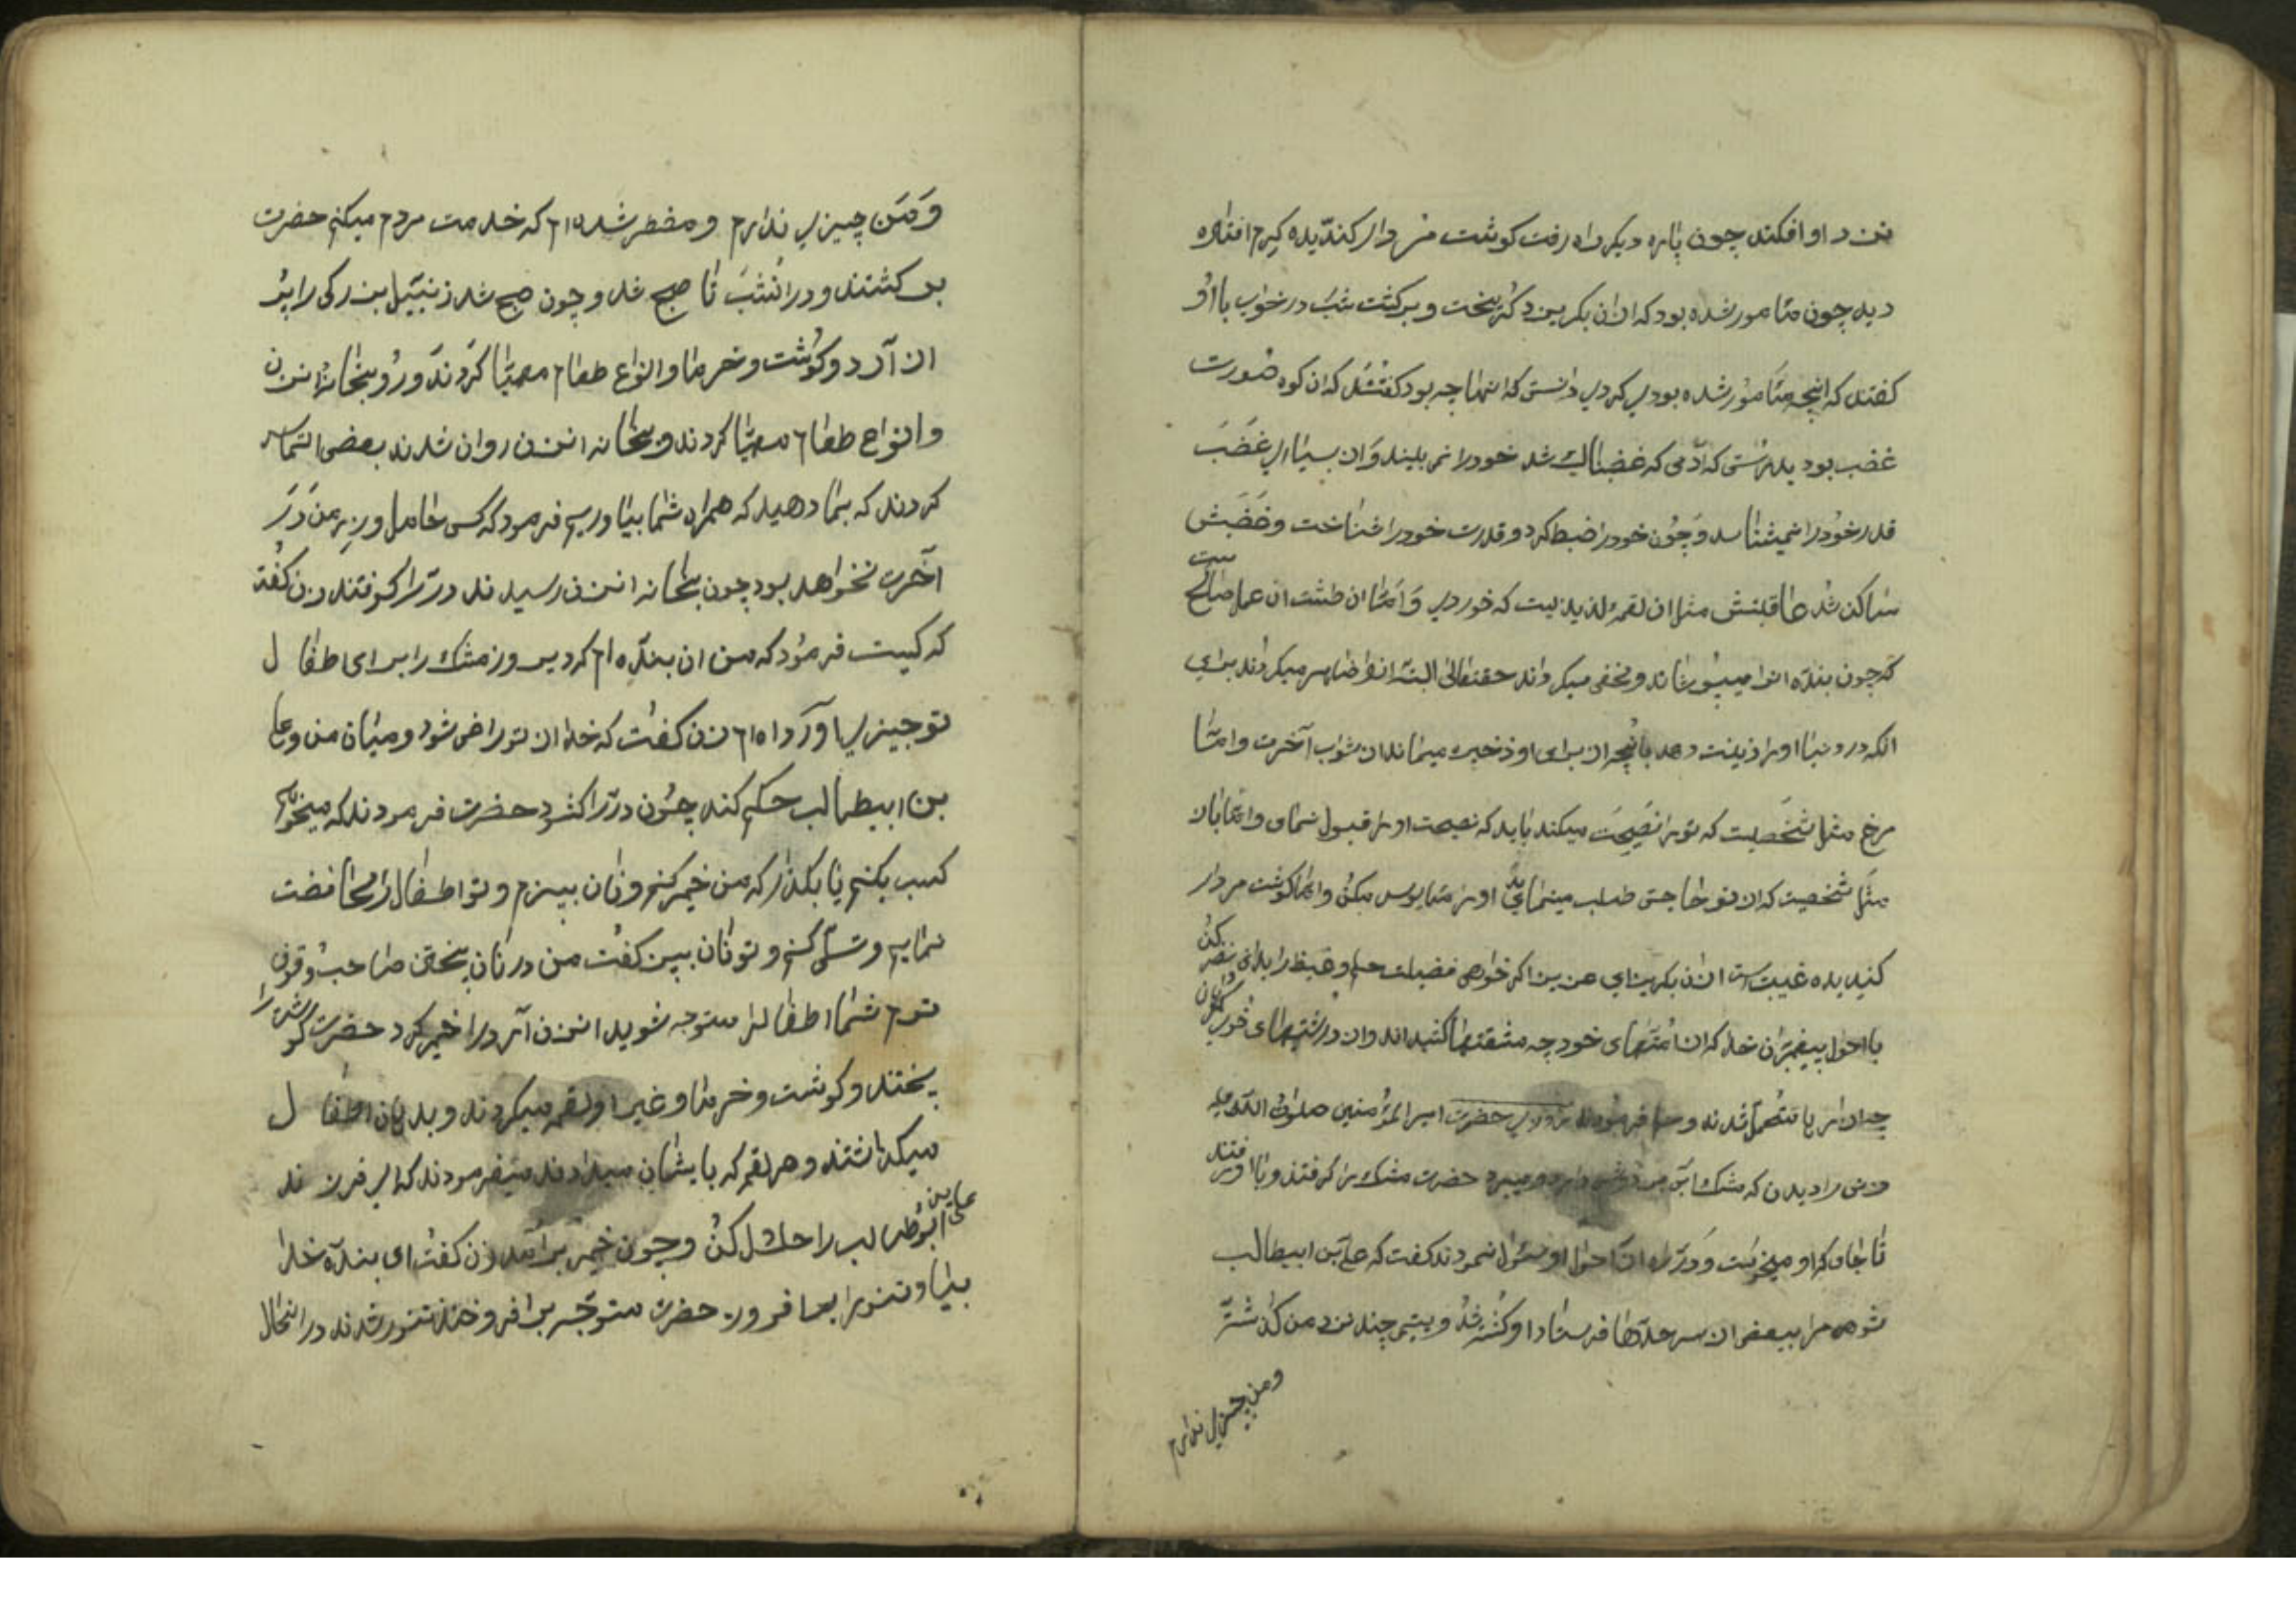 نزد او افکند چون پاره دیکر راه رفت کوشت مردار کندیده کرم افتاده
دید چون مامور شده بود که ازان بکریزد کریخت و برکشت شب در خواب با او
کفتند که انچه مامور شده بودی کردی دانستی که اینها چه بود کفتند که ان کوه صورت
غضب بود بدرستی که آدمی که غضبناک شد خود را نمی بیند و از بسیاری غضب
قدر خود را نمیشناسد و چون خود را ضبط کرد و قدرت خود را شناخت و غضبش
ساکن شد عاقبتش مثل ان لقمه لذیذیست که خوردی و اما ان طشت ان عمل صالحست
که چون بنده انرا میپوشاند و مخفی میکرداند حقتعالی البته انرا ظاهر میکرداند برای
انکه در دنیا او را زینت دهد با انچه از برای او ذخیره مینماید از ثواب آخرت و اما
مرغ مثل شخصیست که تو را نصیحت میکند باید که نصیحت او را قبول نمای و اما باز
مثل شخصیست که از تو حاجتی طلب مینماید او را مایوس مکن و اما کوشت مردار
کندیده غیبت است ازان بکریز ای عزیز اکر خواهی فضیلت حلم و غیظ را بدانی نظر کن
با احوال پیغمبران خدا که از امتهای خود چه مشقتها کشیده اند و از درشتیهای خویشان
چه ازار یافتند روزی حضرت امیر المؤمنین صلوات الله علیه
زنی را دیدن که مشک ابی بر دوش دارد و میبرد حضرت مشک را کرفتند و با او رفتند
تا جای که او میخواست و در راه از احوال او سئوال نمودند کفت که علی بن ابیطالب
شوهر مرا ببعضی از سرحدها فرستاد او کشته شد و یتیمی چند نزد من کذاشته
و من چیزی ندارم
و من چیزی ندارم و مضطر شده ام که خدمت مردم میکنم حضرت
برکشتند و در انشب تا صبح شد و چون صبح شد زنبیل بزرکی را پر
از آرد و کوشت و خرما و انواع طعام مهیا کردند و رو بخانه انزن
و انواع طعام مهیا کردند و بخانه انزن روان شدند بعضی التماس
کردند که بما دهید که همراه شما بیاوریم فرمود که کسی حامل وزر من در
آخرت نخواهد بود چون بخانه انزن رسیدند در را کوفتند زن کفت
که کیست فرمود که من ان بنده ام که دیروز مشک را برای اطفال
تو چیزی آورده ام زن کفت که خدا از تو راضی شود و میان من و علی
بن ابیطالب حکم کند چون در را کشود حضرت فرمودند که میخواهم
کسب بکنم یا بکذار که من خمیر کنم و نان بپزم و تو اطفال را محافظت
نمایم و تسلی کنم و تو نان بپز کفت من در نان پختن صاحب وقوف
ترم شما اطفال را متوجه شوید انزن آرد را خمیر کرد حضرت کوشت را
پختند و کوشت و خرما و غیر او لقمه میکردند و بدهان اطفال
میکذاشتند و هر لقمه که بایشان میدادند میفرمودند که ای فرزند
علی بن ابوطالب را حلال کن و چون خمیر برآمد زن کفت ای بنده خدا
بیا و تنور را بیافروز حضرت متوجه برافروختن تنور شدند در انحال